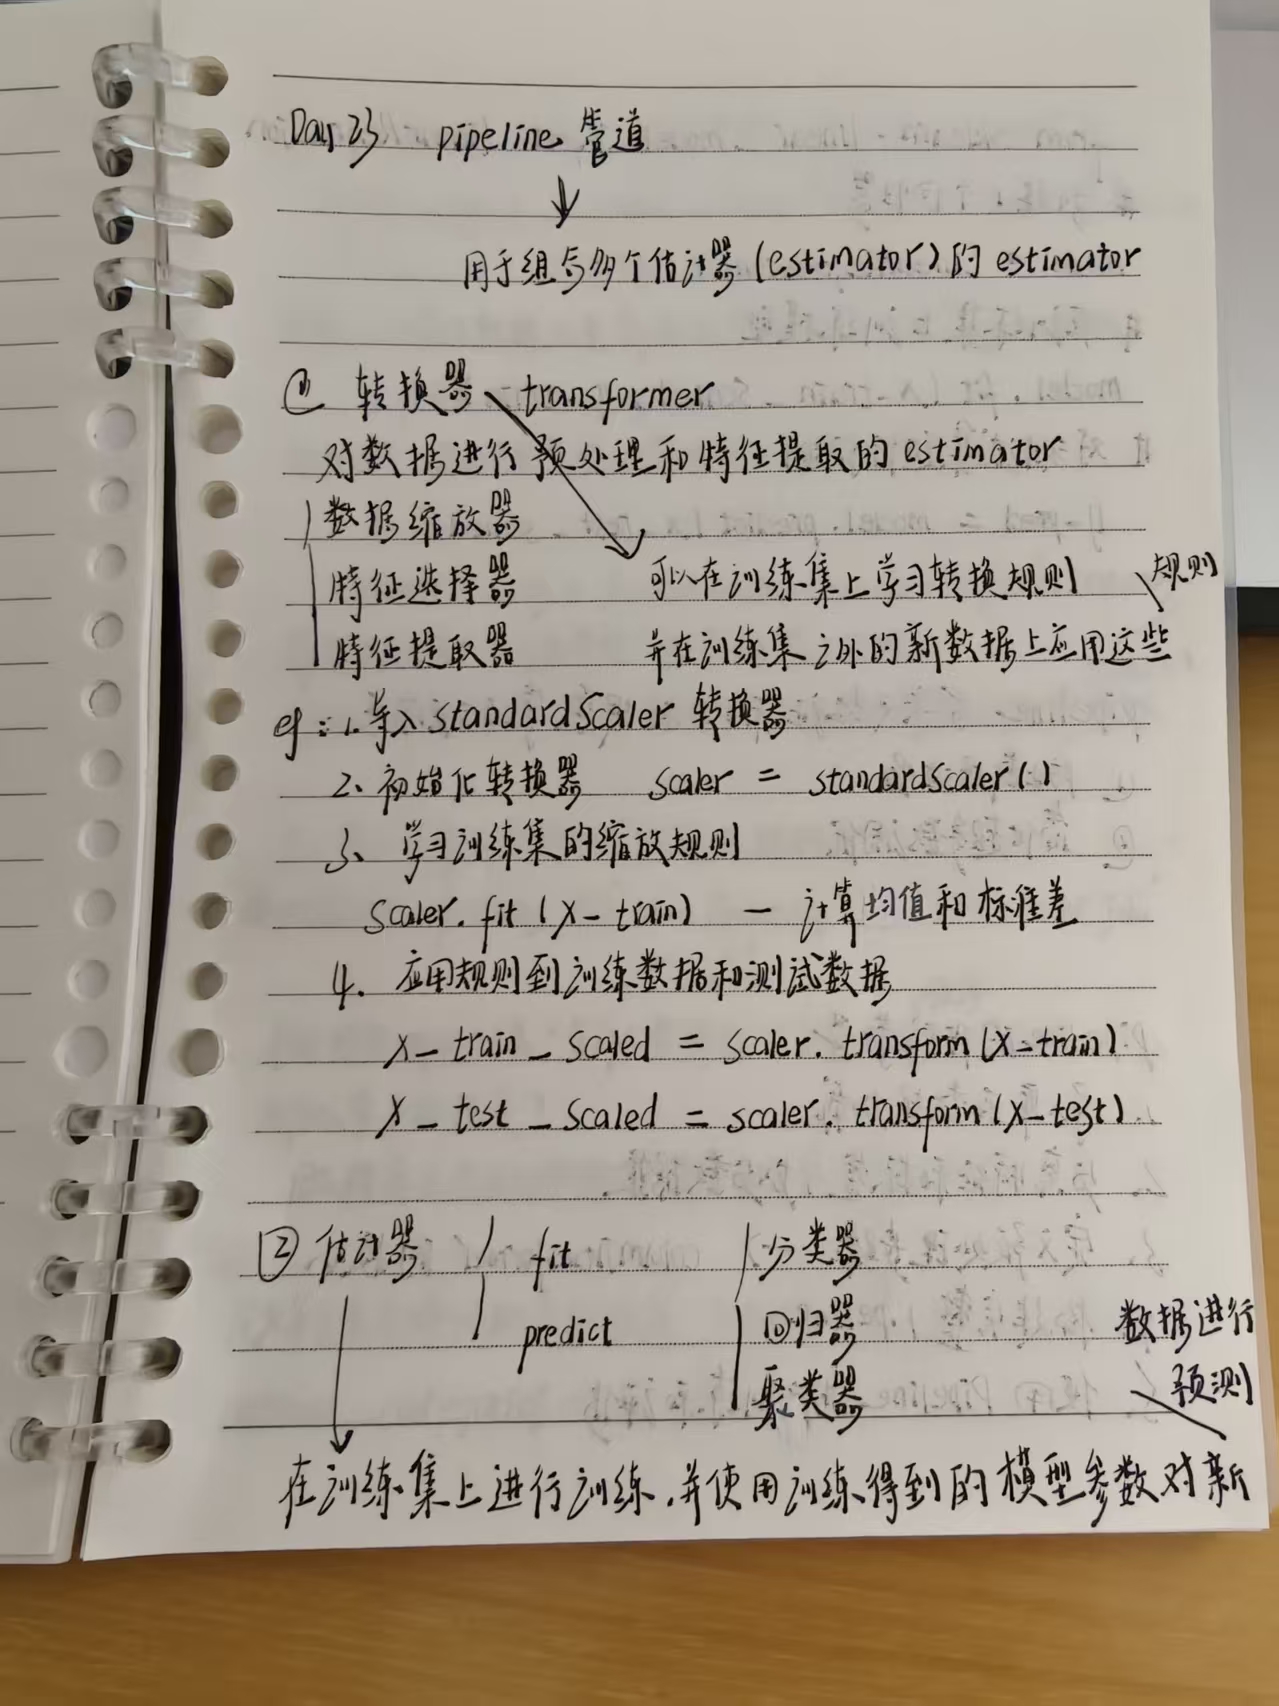 Day 23 pipeline 管道
用于组合多个估计器(estimator)的 estimator
① 转换器 transformer
对数据进行预处理和特征提取的 estimator
数据缩放器
特征选择器 可以在训练集上学习转换规则
特征提取器 并在训练集之外的新数据上应用这些
规则
eg: 1. 导入 standardScaler 转换器
2、初始化转换器 scaler = standardScaler()
3、学习训练集的缩放规则
scaler.fit(x_train) — 计算均值和标准差
4. 应用规则到训练数据和测试数据
x_train_scaled = scaler.transform(x_train)
x_test_scaled = scaler.transform(x_test)
② 估计器 fit 分类器
predict 回归器
聚类器
在训练集上进行训练,并使用训练得到的模型参数对新
数据进行
预测